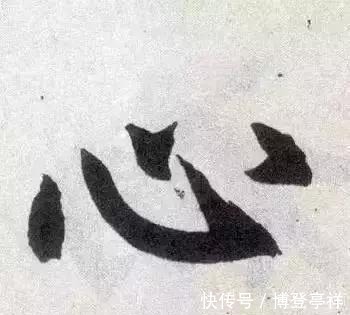 心
快传号／博登亭祥